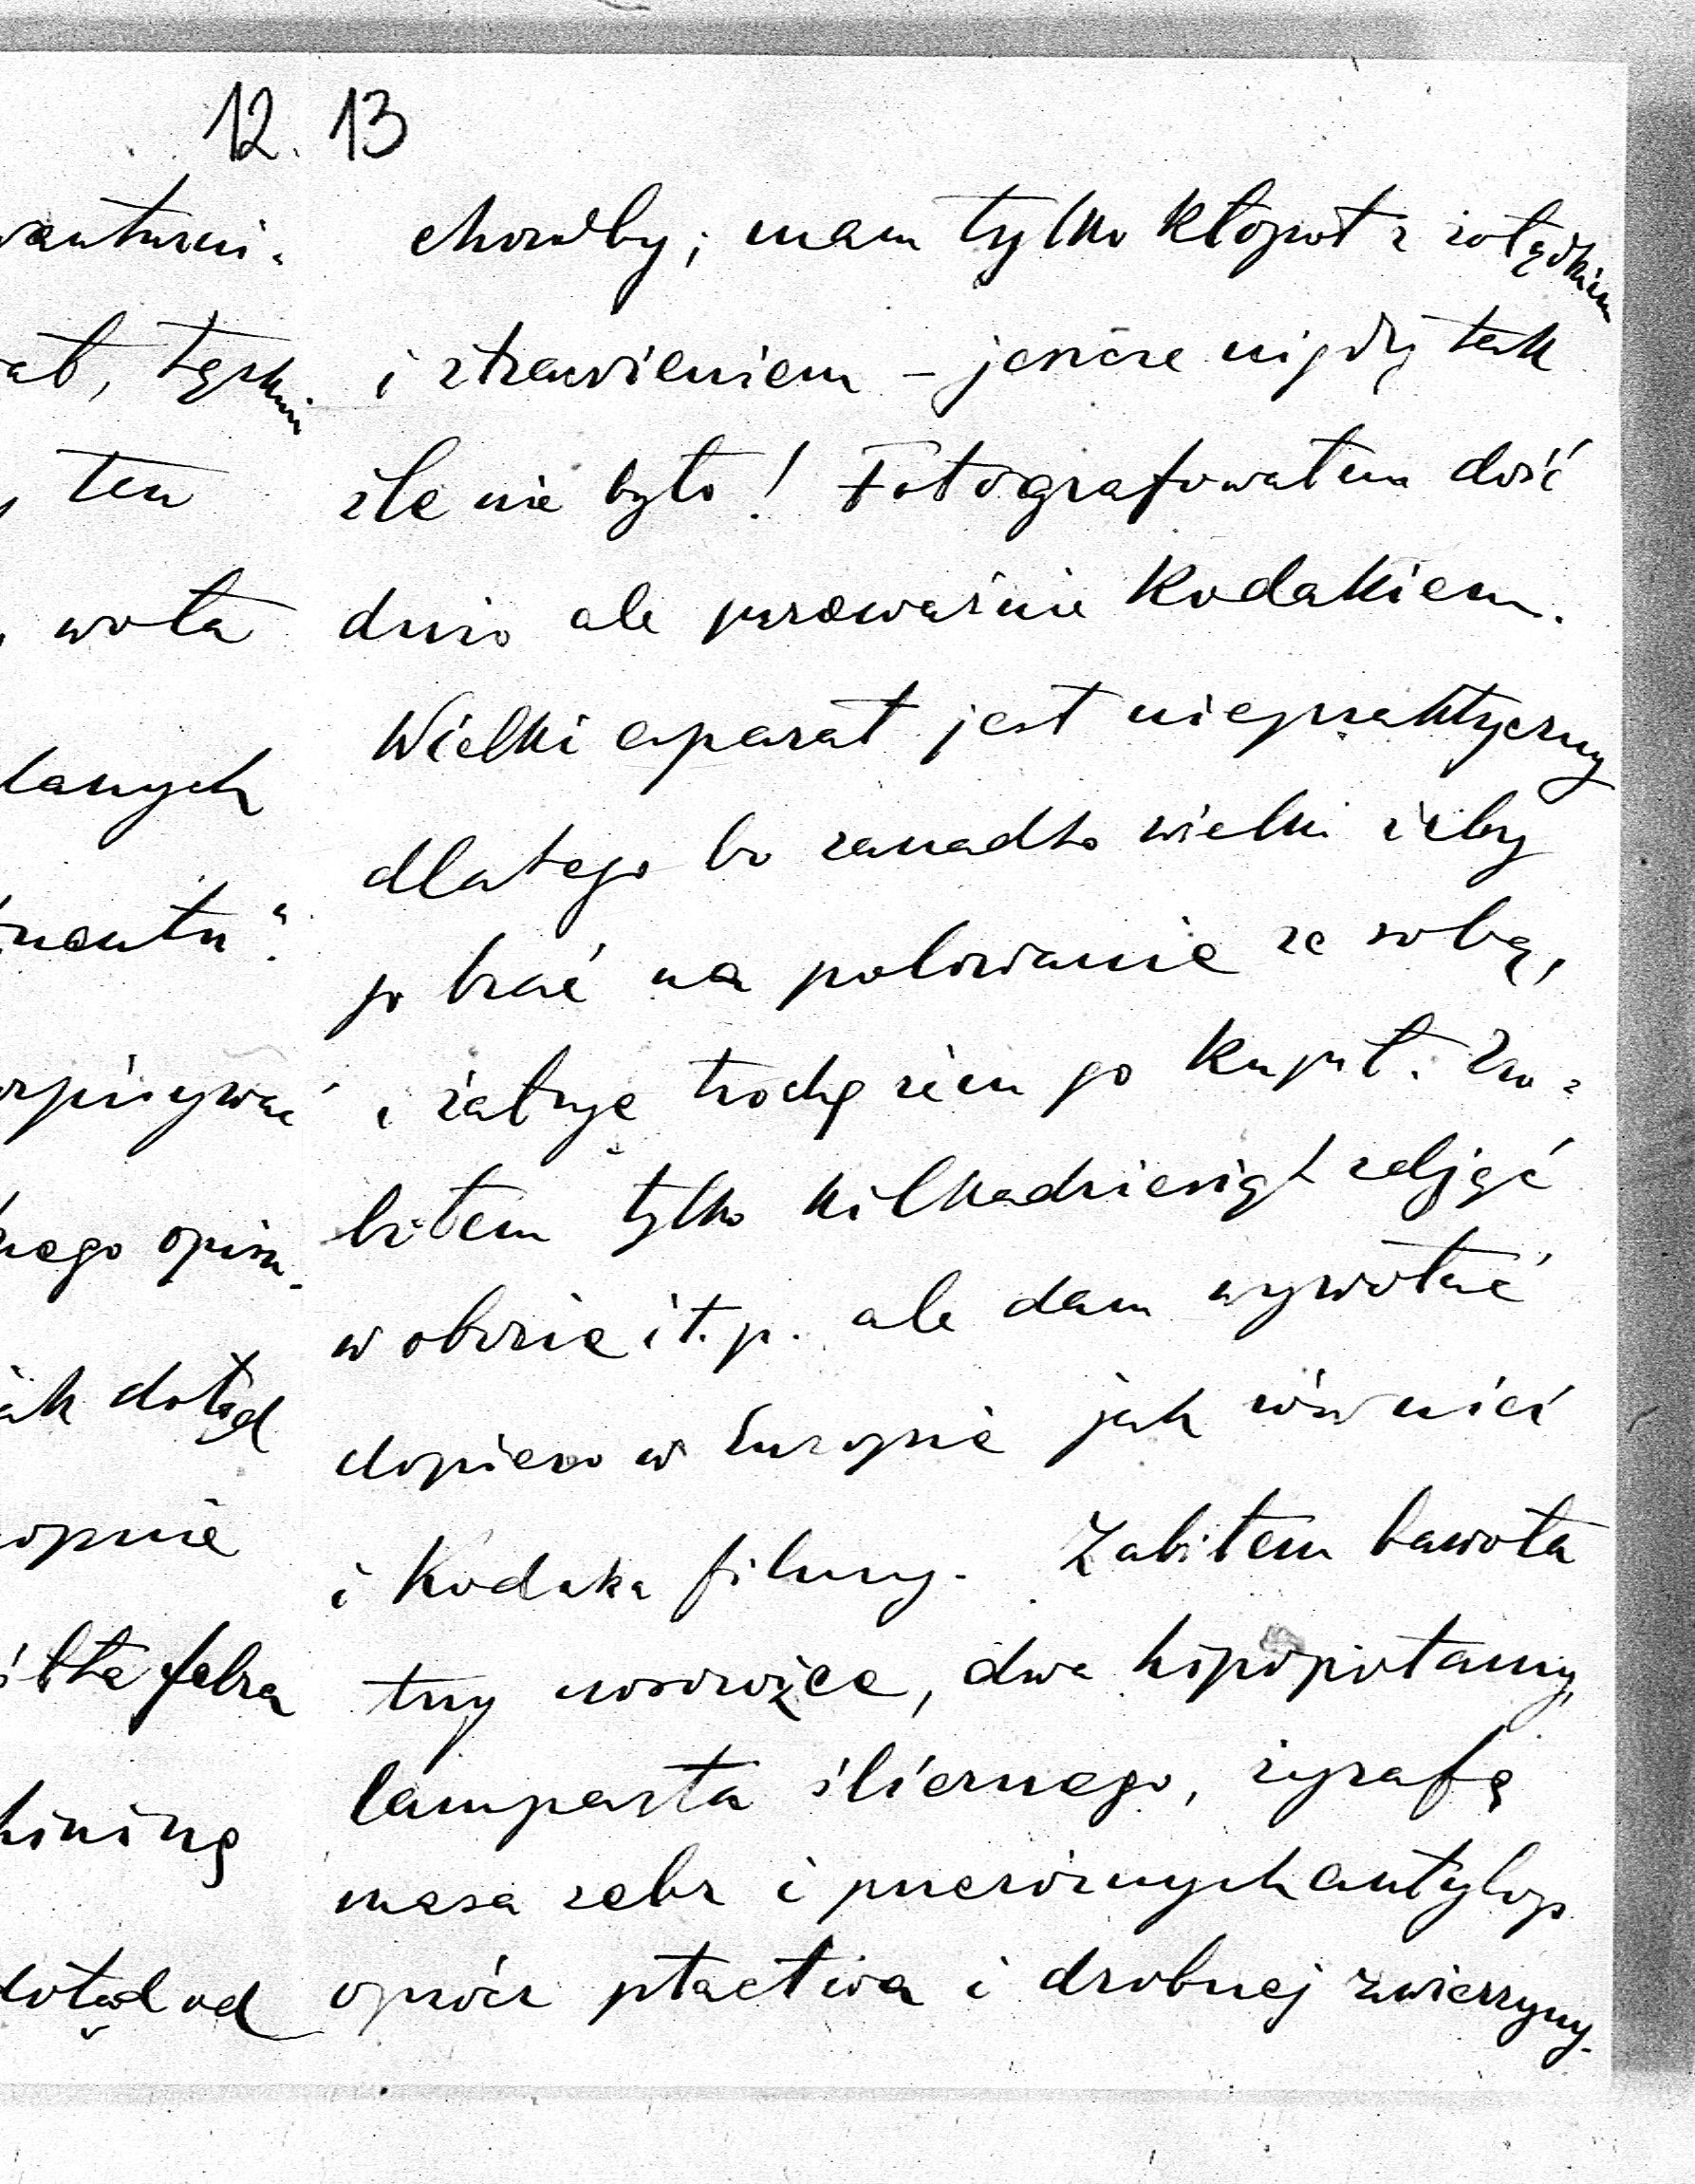 12. 13
choroby; mam tylko kłopot z żołądkiem
i strawieniem – jeszcze nigdy tak
źle nie było! Fotografowałem dość
dużo ale przeważnie Kodakiem.
Wielki aparat jest niepraktyczny
dlatego bo zanadto wielki żeby
go brać na polowanie ze sobą,
i żałuję trochę żem go kupił. Zro-
biłem tylko kilkadziesiąt zdjęć
w obozie i t. p. ale dam wywołać
dopiero w Europie jak również
i Kodaka filmy. Zabiłem bawoła
trzy nosorożce, dwa hipopotamy,
lamparta ślicznego, żyrafę
masa zebr i przeróżnych antylop
oprócz ptactwa i drobnej zwierzyny.
ten
woła
opisu.
dotąd
febra
dotąd od